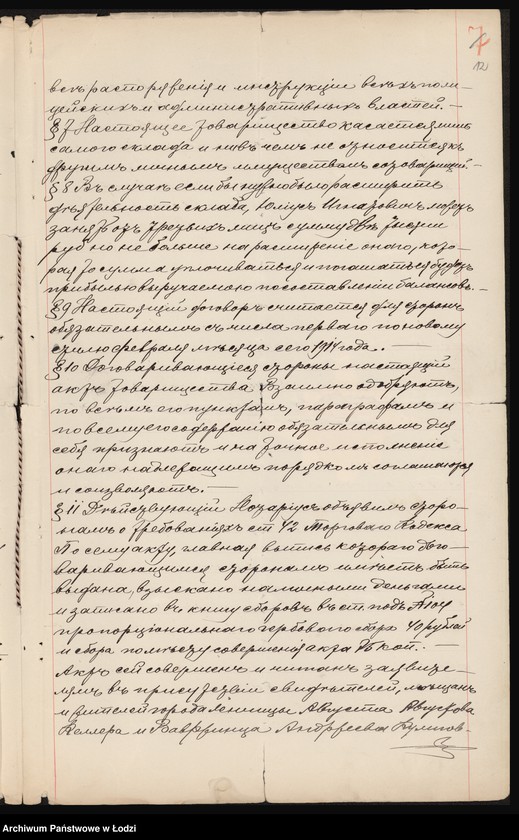 7
12
всѣ распоряженія и инструкціи всѣхъ поли-
цейскихъ и административныхъ властей. –
§ 7 Настоящее товарищество касается лишь
самого склада и ни въ чемъ не относится къ
другимъ личнымъ имуществамъ сотоварищей. –
§ 8 Въ случаѣ если бы нужно было расширить
дѣятельность склада, Юліусъ можетъ
занять отъ третьихъ лицъ сумму двѣ тысячи
руб но не больше на расширеніе онаго, кото-
рая то сумма уплочиваться и погашаться будетъ
прибылью выручаемою по составленіи балансовъ. –
§ 9 Настоящій договоръ считается для сторонъ
обязательнымъ съ числа перваго по новому
стилю февраля мѣсяца сего 1914 года. –
§ 10 Договаривающіеся стороны настоящій
актъ товарищества взаимно одобряютъ,
по всѣмъ его пунктамъ, параграфамъ и
по всему его содержанію обязательнымъ для
себя признаютъ и на точное исполненіе
онаго надлежащимъ порядкомъ соглашаются
и соизволяютъ. –
§ 11 Дѣйствующій Нотаріусъ объявилъ сторо-
намъ о требованіяхъ ст 42 Торговаго Кодекса
По сему акту, главная выпись котораго дого-
варивающимся сторонамъ имѣетъ быть
выдана, взыскано наличными деньгами
и записано въ книгу сборовъ въ ст. подъ №
пропорціональнаго гербового сбора 40 рублей
и сбора по мѣсту совершенія акта коп. –
Актъ сей совершенъ и читанъ заявите-
лямъ въ присутствіи свидѣтелей, мѣщанъ
и жителей города Августа Августова
Келлера и Вавржинца Андреева
Archiwum Państwowe w Łodzi